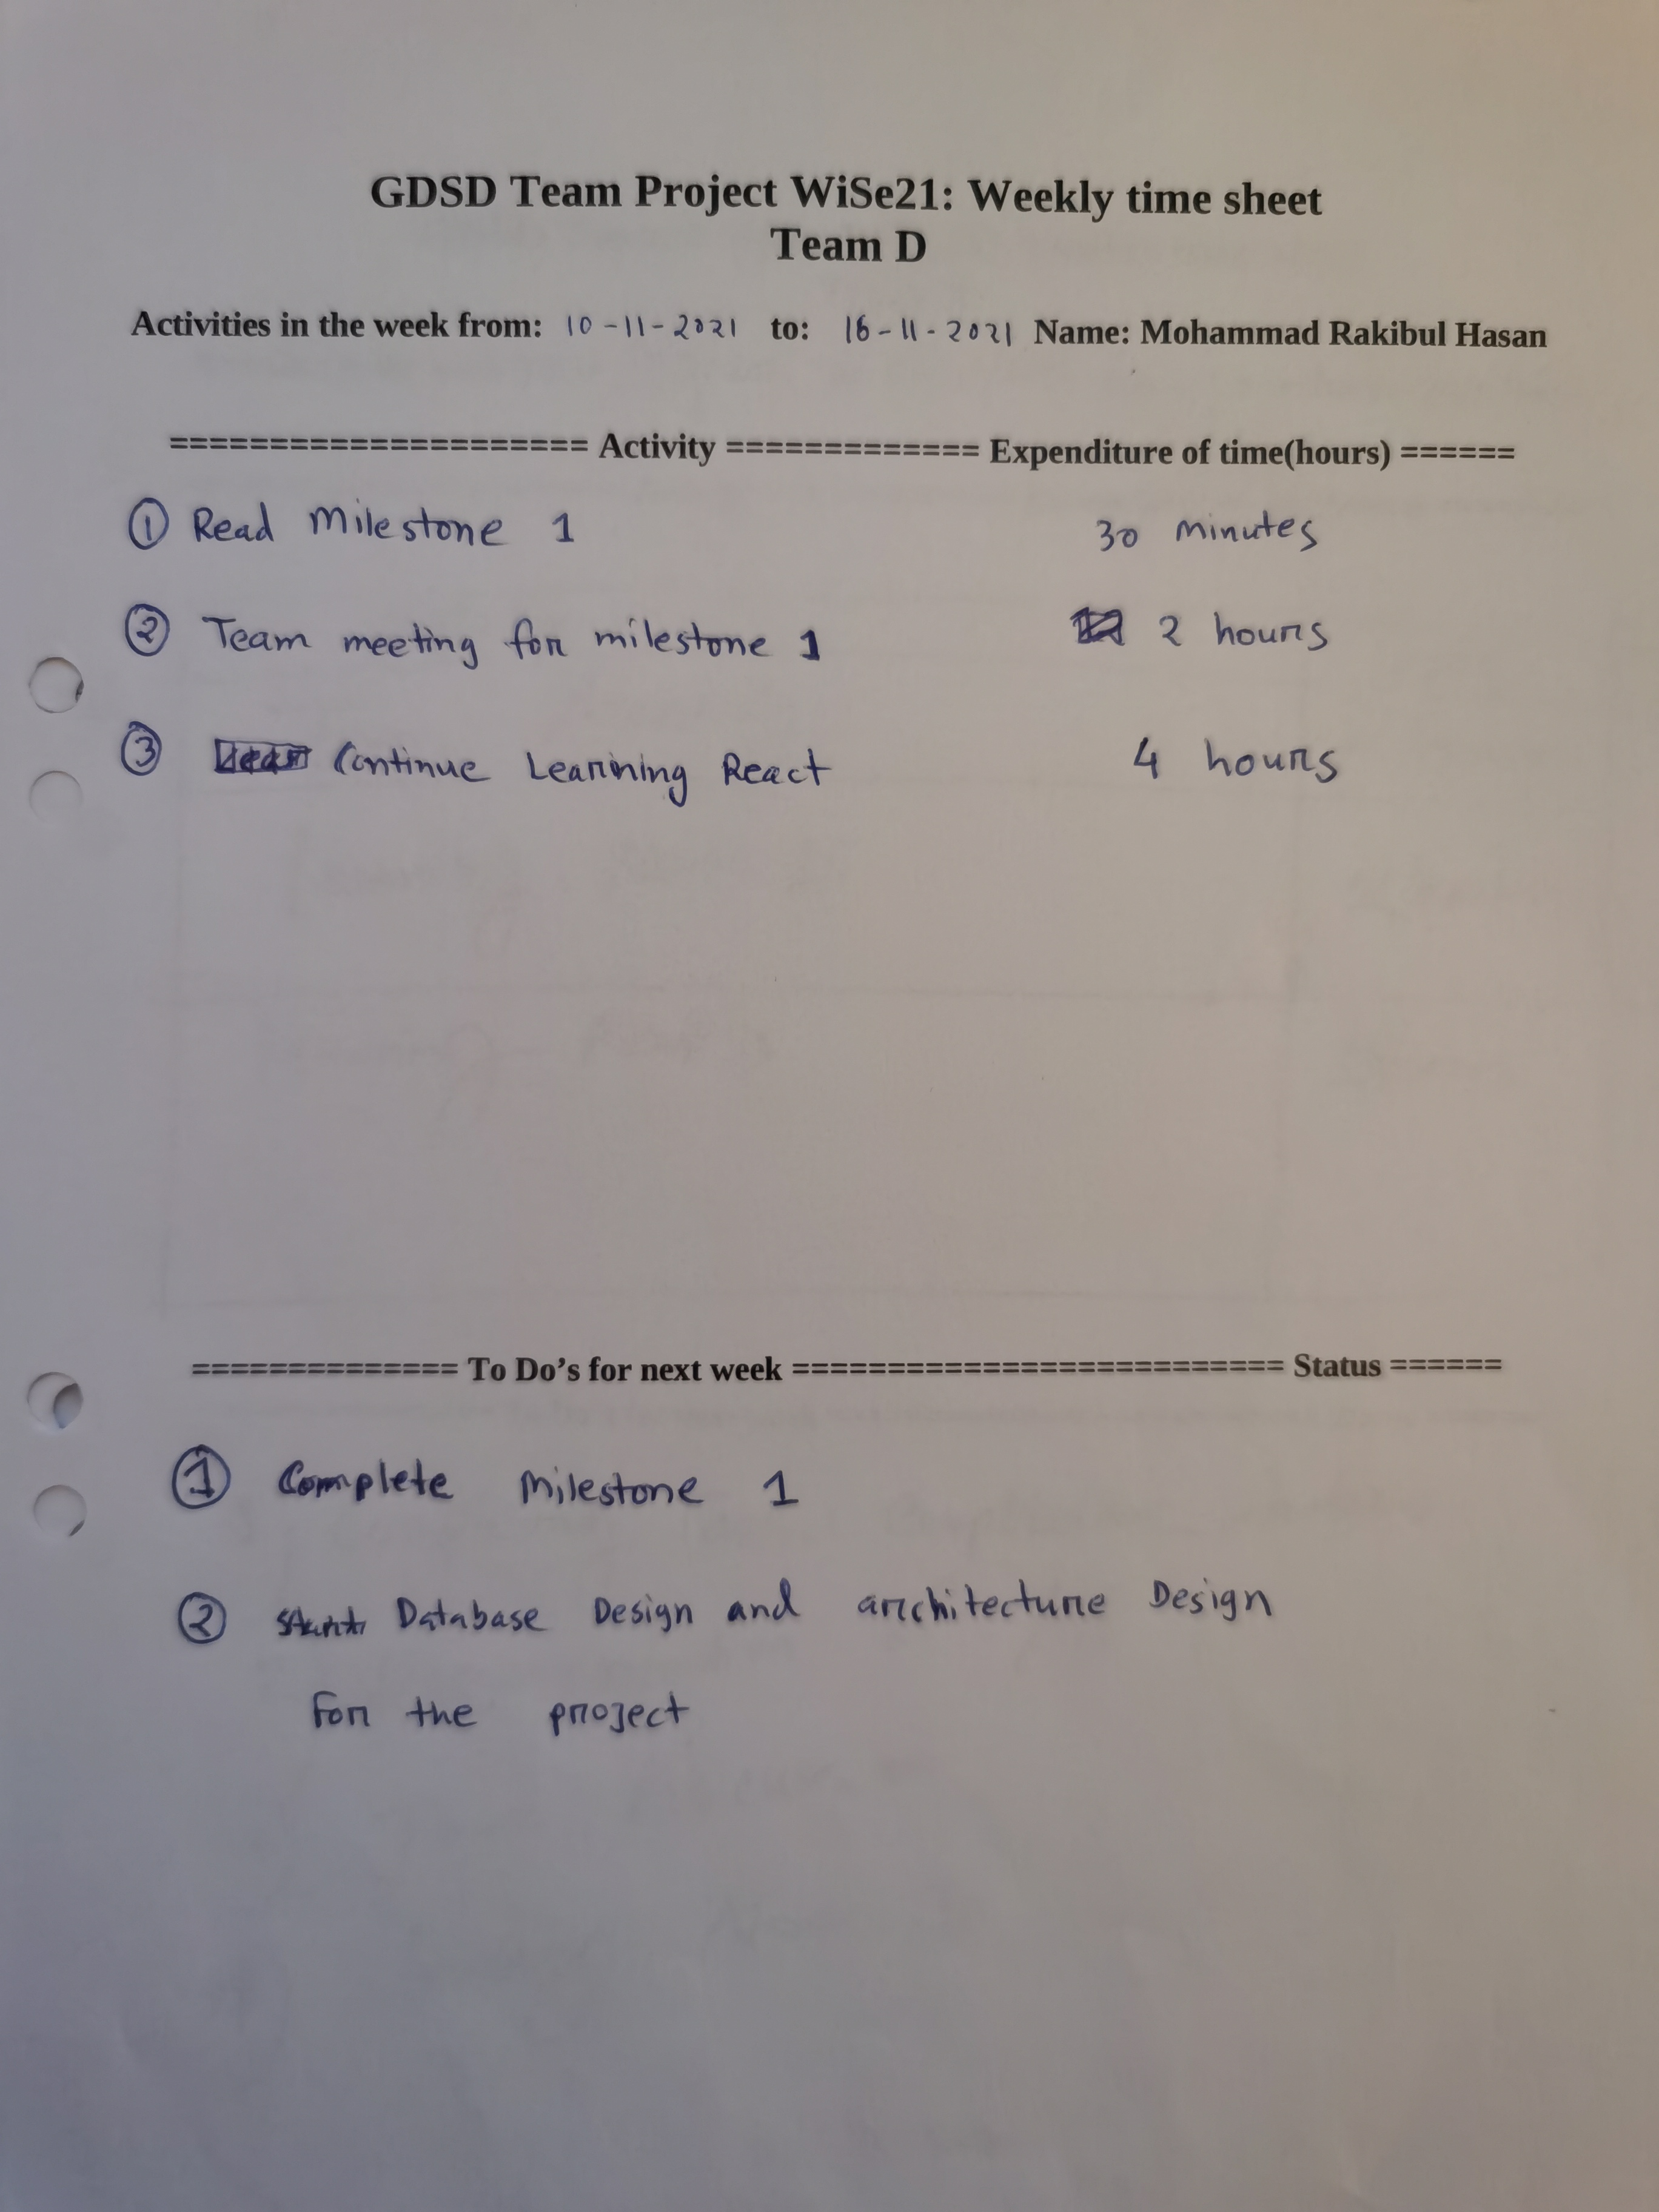 GDSD Team Project WiSe21: Weekly time sheet
Team D
Activities in the week from: 10-11-2021 to: 16-11-2021 Name: Mohammad Rakibul Hasan
===================== Activity ============= Expenditure of time(hours) ======
① Read Milestone 1 30 minutes
② Team meeting for milestone 1 2 hours
③ Continue Learning React 4 hours
============== To Do's for next week ========================== Status ======
① Complete Milestone 1
② Start Database Design and architecture Design
For the project